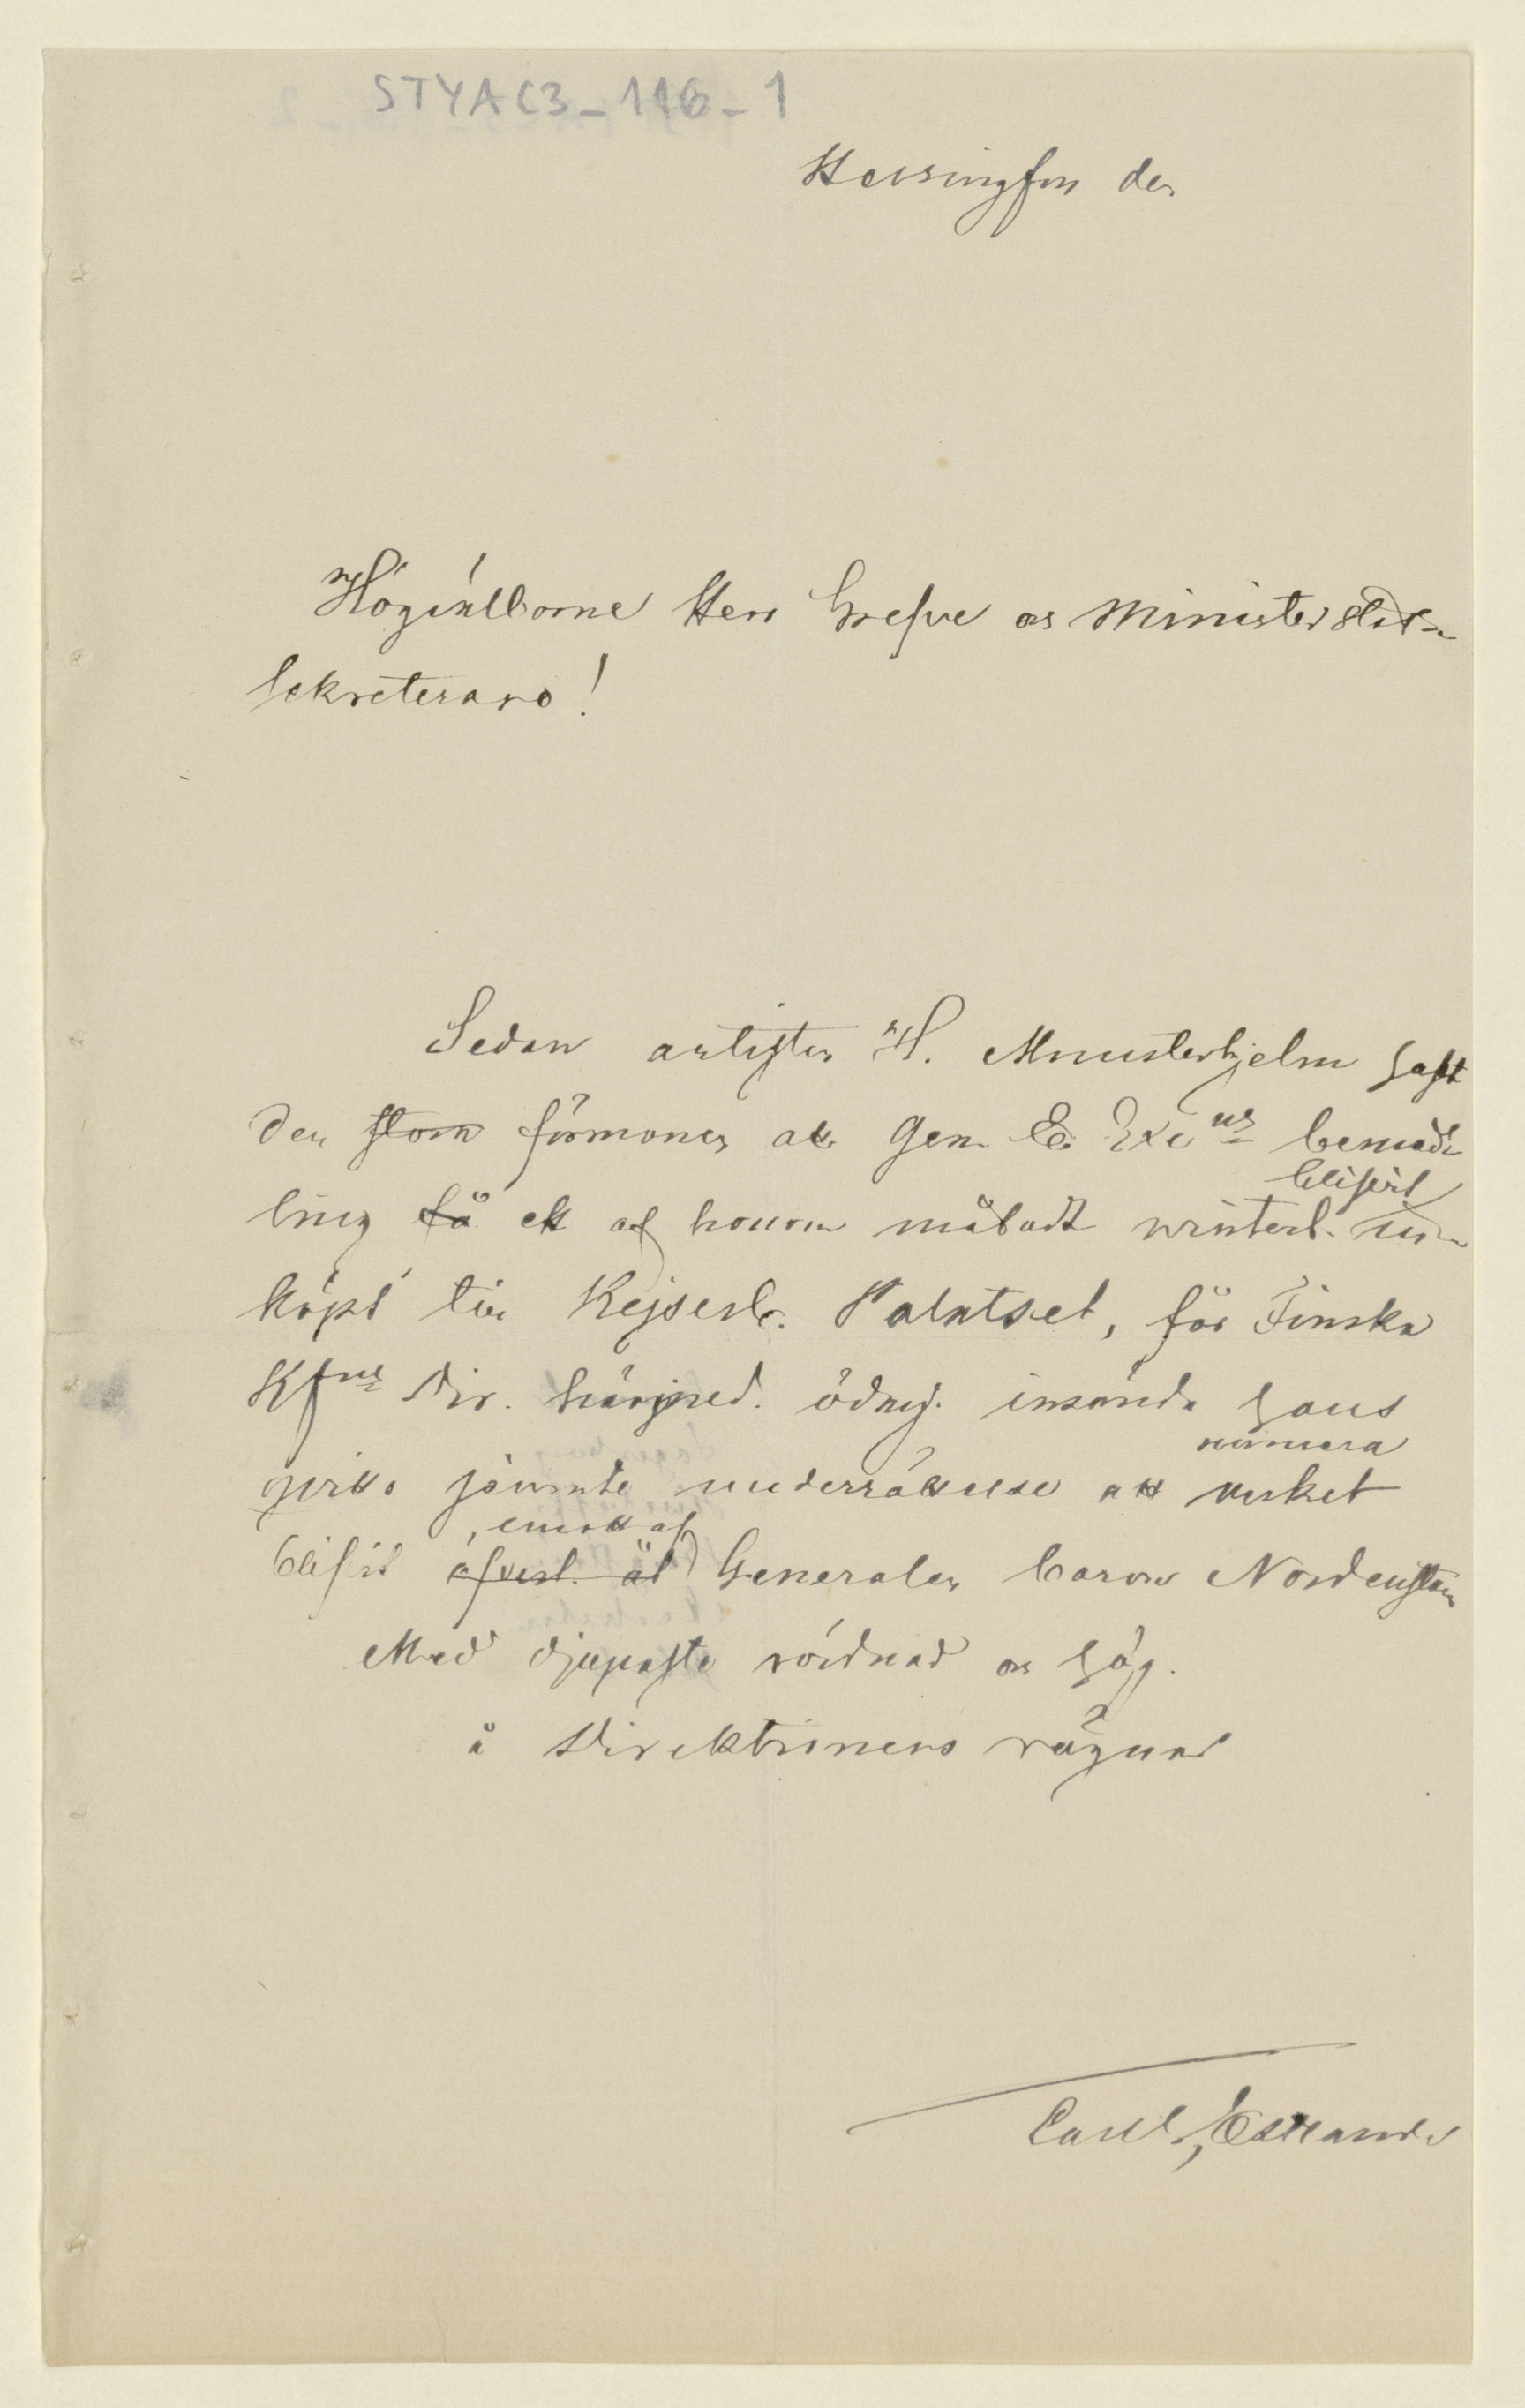 STYA C3_116_1
Helsingfors den
Högvälborne Herr Grefve och Ministerstats
sekreterare!
Sedan artisten H. Munsterhjelm haft
den stora förmånen att gen. E. Exc:ns bemed
blifvit
ling få ett af honom måladt winterl. in-
köpt till Kejserl. Palatset, för Finska
Kfngs Dir. härmed. ödmj. insända hans
numera
qvitto jämnte underrättelse att verket
, emott. af
blifvit afverl. åt Generalen baron Nordenstam
Med djupaste vördnad och hög.
å Direktionens vägnar
Carl G. Estlander